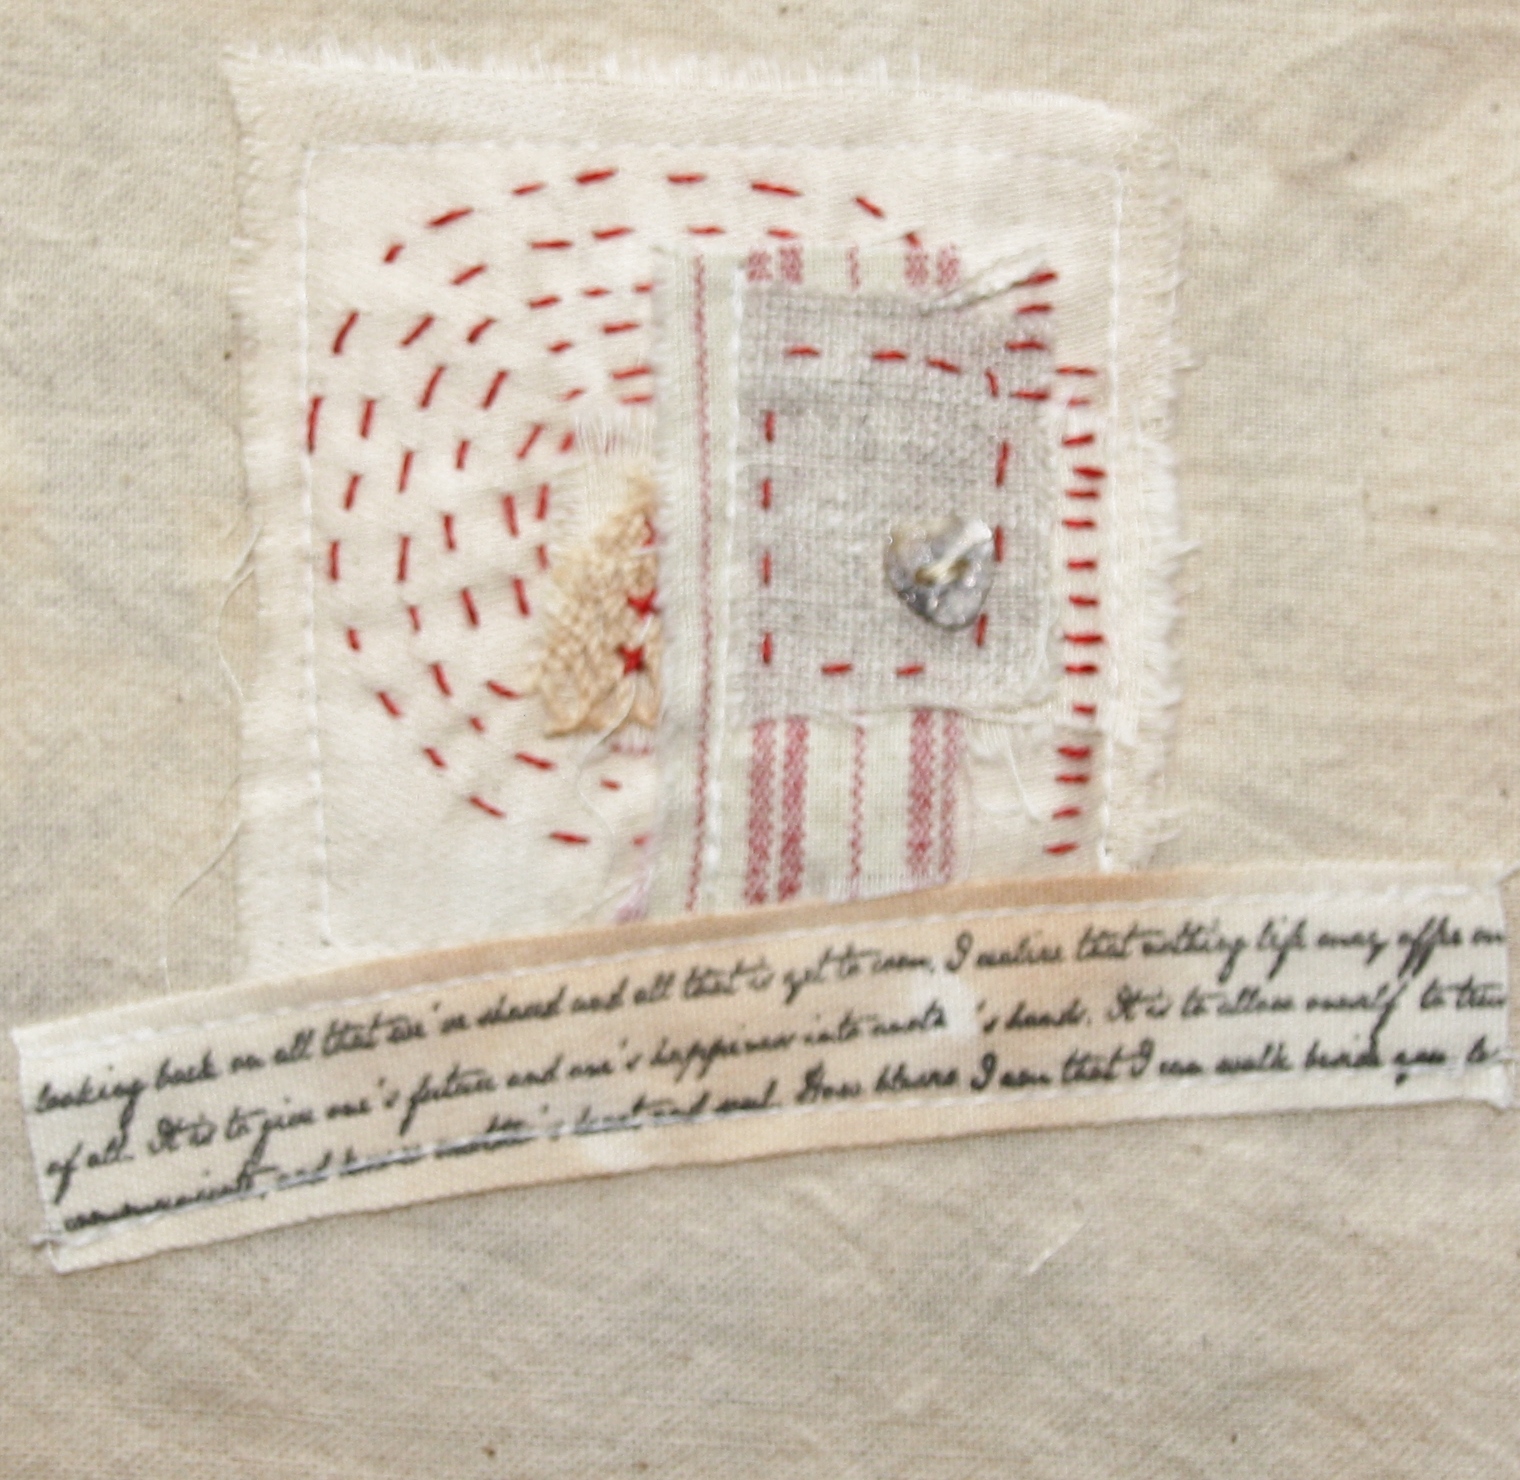 looking back on all that we've shared and all that is yet to come, I realize that nothing life may offer
of all. It is to give one's future and one's happiness into 's hands. It is to allow oneself to
communicate, and heart and soul. How blessed I am that I can walk beside you